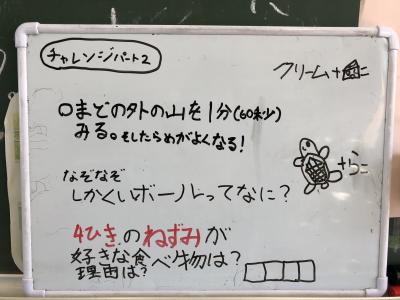 チャレンジパート2
クリーム+=
○まどのタトの山を1分(60秒)
みる。そしたらめがよくなる!
+ら=
なぞなぞ
しかくいボールってなに?
4ひきのねずみが
好きな食べ物は?
理由は?